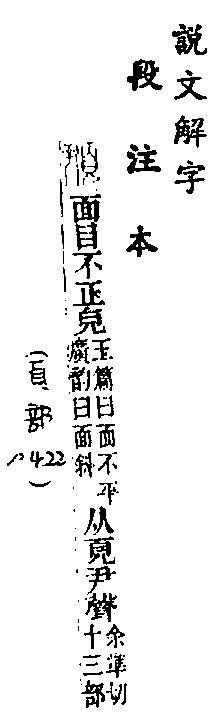 説文解字
段注本
面目不正皃
玉篇曰面不平
廣韵曰面斜
从頁尹聲
余準切
十三部
(頁部
P422)